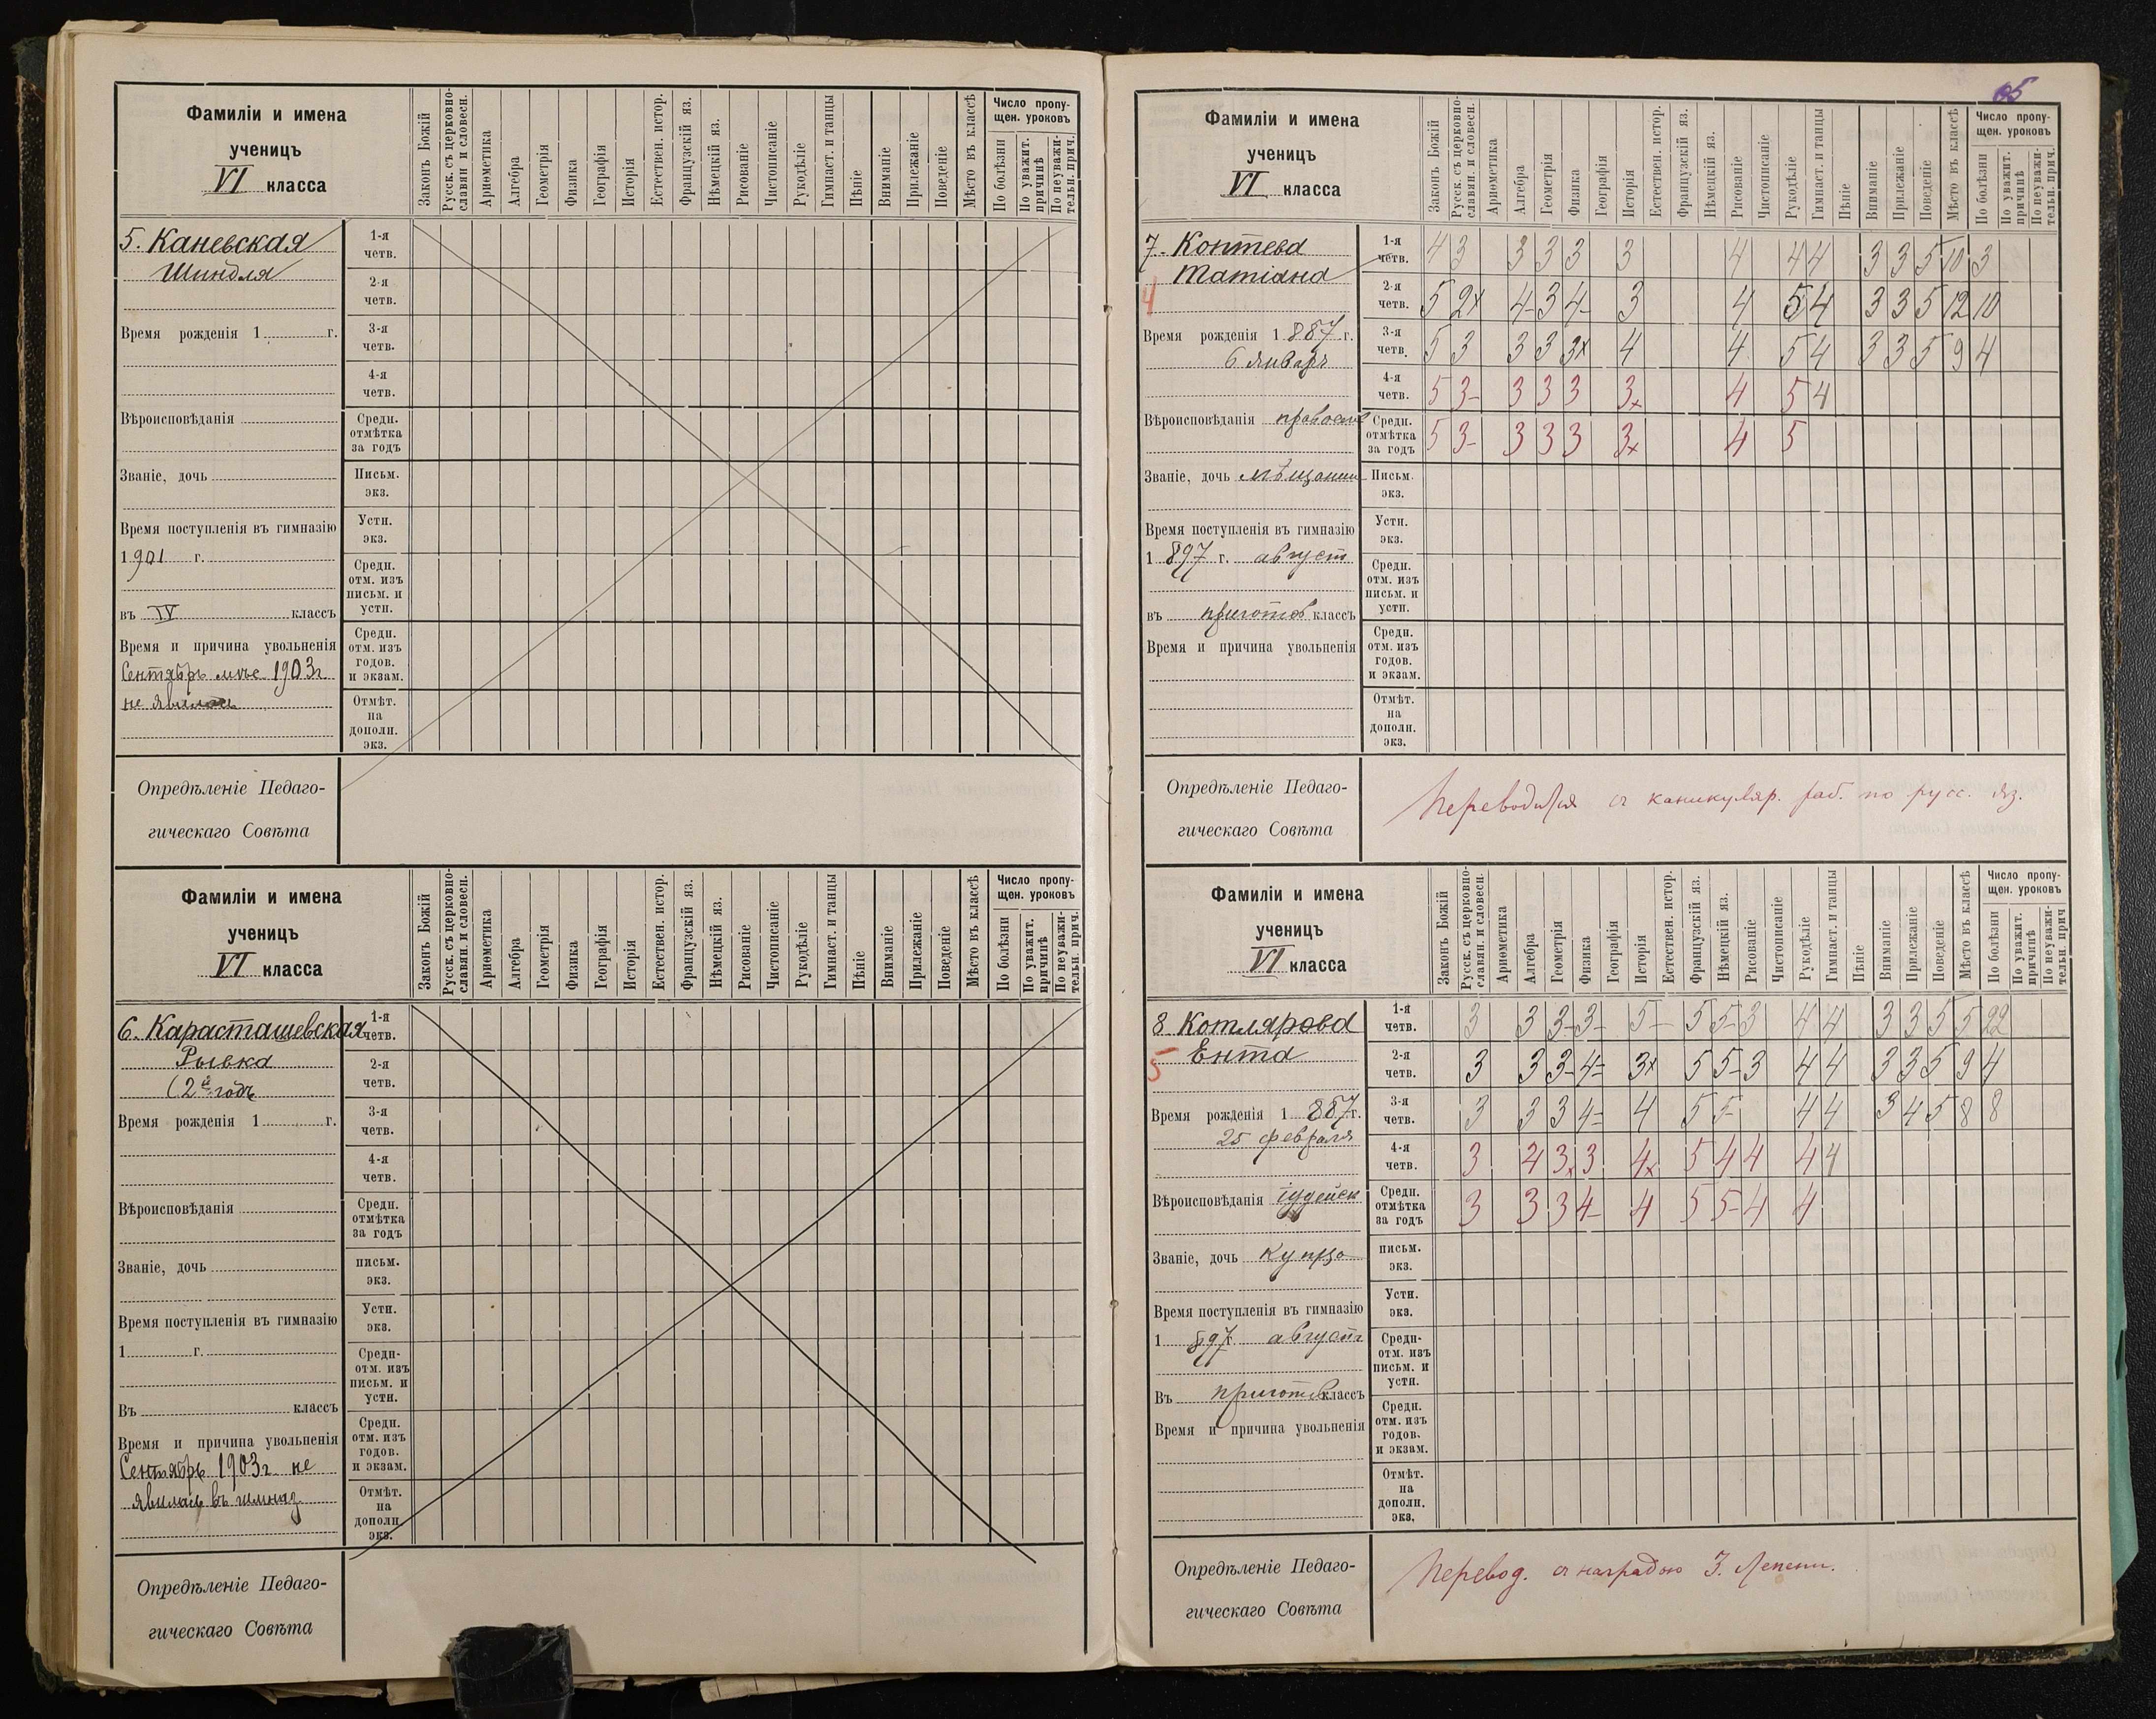 Фамиліи и имена
ученицъ
VI класса
Законъ Божій
Русск. съ церковно-славян. и словесн.
Ариѳметика
Алгебра
Геометрія
Физика
Географія
Исторія
Естествен. истор.
Французскій яз.
Нѣмецкій яз.
Рисованіе
Чистописаніе
Рукодѣліе
Гимнаст. и танцы
Пѣніе
Вниманіе
Прилежаніе
Поведеніе
Мѣсто въ классѣ
Число пропущен. уроковъ
По болѣзни
По уважит. причинѣ
По неуважительн. прич.
5. Каневская
Шиндля
Время рожденія 1 г.
Вѣроисповѣданія
Званіе, дочь
Время поступленія въ гимназію
1901 г.
въ IV классъ
Время и причина увольненія
Сентябрь 1903г
не явилась
1-я четв.
2-я четв.
3-я четв.
4-я четв.
Средн. отмѣтка за годъ
Письм. экз.
Устн. экз.
Средн. отм. изъ письм. и устн.
Средн. отм. изъ годов. и экзам.
Отмѣт. на дополн. экз.
Опредѣленіе Педаго-
гическаго Совѣта
Фамиліи и имена
ученицъ
VI класса
Законъ Божій
Русск. съ церковно-славян. и словесн.
Ариѳметика
Алгебра
Геометрія
Физика
Географія
Исторія
Естествен. истор.
Французскій яз.
Нѣмецкій яз.
Рисованіе
Чистописаніе
Рукодѣліе
Гимнаст. и танцы
Пѣніе
Вниманіе
Прилежаніе
Поведеніе
Мѣсто въ классѣ
Число пропущен. уроковъ
По болѣзни
По уважит. причинѣ
По неуважительн. прич.
6. Карасташевская
Рывка
(2й годъ
Время рожденія 1 г.
Вѣроисповѣданія
Званіе, дочь
Время поступленія въ гимназію
1 г.
Въ классъ
Время и причина увольненія
Сентябрь 1903г не
явилась въ гимназ
1-я четв.
2-я четв.
3-я четв.
4-я четв.
Средн. отмѣтка за годъ
письм. экз.
Устн. экз.
Средн- отм. изъ письм. и устн.
Средн. отм. изъ годов. и экзам.
Отмѣт. на дополн. экз.
Опредѣленіе Педаго-
гическаго Совѣта
65
Фамиліи и имена
ученицъ
VI класса
Законъ Божій
Русск. съ церковно-славян. и словесн.
Ариѳметика
Алгебра
Геометрія
Физика
Географія
Исторія
Естествен. истор.
Французскій яз.
Нѣмецкій яз.
Рисованіе
Чистописаніе
Рукодѣліе
Гимнаст. и танцы
Пѣніе
Вниманіе
Прилежаніе
Поведеніе
Мѣсто въ классѣ
Число пропущен. уроковъ
По болѣзни
По уважит. причинѣ
По неуважительн. прич.
7. Коптева
Татіана
4
Время рожденія 1887 г.
6 январь
Вѣроисповѣданія правосл
Званіе, дочь мѣщанин
Время поступленія въ гимназію
1897 г. август
въ приготов классъ
Время и причина увольненія
1-я четв. 4 3 3 3 3 3 4 4 4 3 3 5 10 3
2-я четв. 5 2x 4- 3 4- 3 4 5 4 3 3 5 12 10
3-я четв. 5 3 3 3 3x 4 4 5 4 3 3 5 9 4
4-я четв. 5 3- 3 3 3 3x 4 5 4
Средн. отмѣтка за годъ 5 3- 3 3 3 3x 4 5
Письм. экз.
Устн. экз.
Средн. отм. изъ письм. и устн.
Средн. отм. изъ годов. и экзам.
Отмѣт. на дополн. экз.
Опредѣленіе Педаго-
гическаго Совѣта
Переводится съ каникуляр. раб. по русс. яз.
Фамиліи и имена
ученицъ
VI класса
Законъ Божій
Русск. съ церковно-славян. и словесн.
Ариѳметика
Алгебра
Геометрія
Физика
Географія
Исторія
Естествен. истор.
Французскій яз.
Нѣмецкій яз.
Рисованіе
Чистописаніе
Рукодѣліе
Гимнаст. и танцы
Пѣніе
Вниманіе
Прилежаніе
Поведеніе
Мѣсто въ классѣ
Число пропущен. уроковъ
По болѣзни
По уважит. причинѣ
По неуважительн. прич
8 Котлярова
Ента
5
Время рожденія 1887г.
25 февраля
Вѣроисповѣданія іудейск
Званіе, дочь купца
Время поступленія въ гимназію
1897 августъ
Въ приготов классъ
Время и причина увольненія
1-я четв. 3 3 3- 3- 5- 5 5- 3 4 4 3 3 5 5 22
2-я четв. 3 3 3- 4- 3x 5 5- 3 4 4 3 3 5 9 4
3-я четв. 3 3 3 4- 4 5 5- 4 4 3 4 5 8 8
4-я четв. 3 4 3x 3 4x 5 4 4 4 4
Средн. отмѣтка за годъ 3 3 3 4- 4 5 5- 4 4
письм. экз.
Устн. экз.
Средн- отм. изъ письм. и устн.
Средн. отм. изъ годов. и экзам.
Отмѣт. на дополн. экз.
Опредѣленіе Педаго-
гическаго Совѣта
Перевод. съ наградою